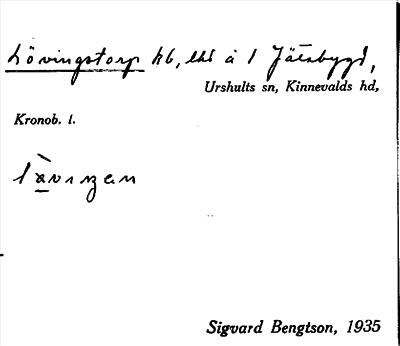 Lövingstorp hb, lht å 1 Jätsbygd,
Urshults sn, Kinnevalds hd,
Kronob. l.
Sigvard Bengtson, 1935